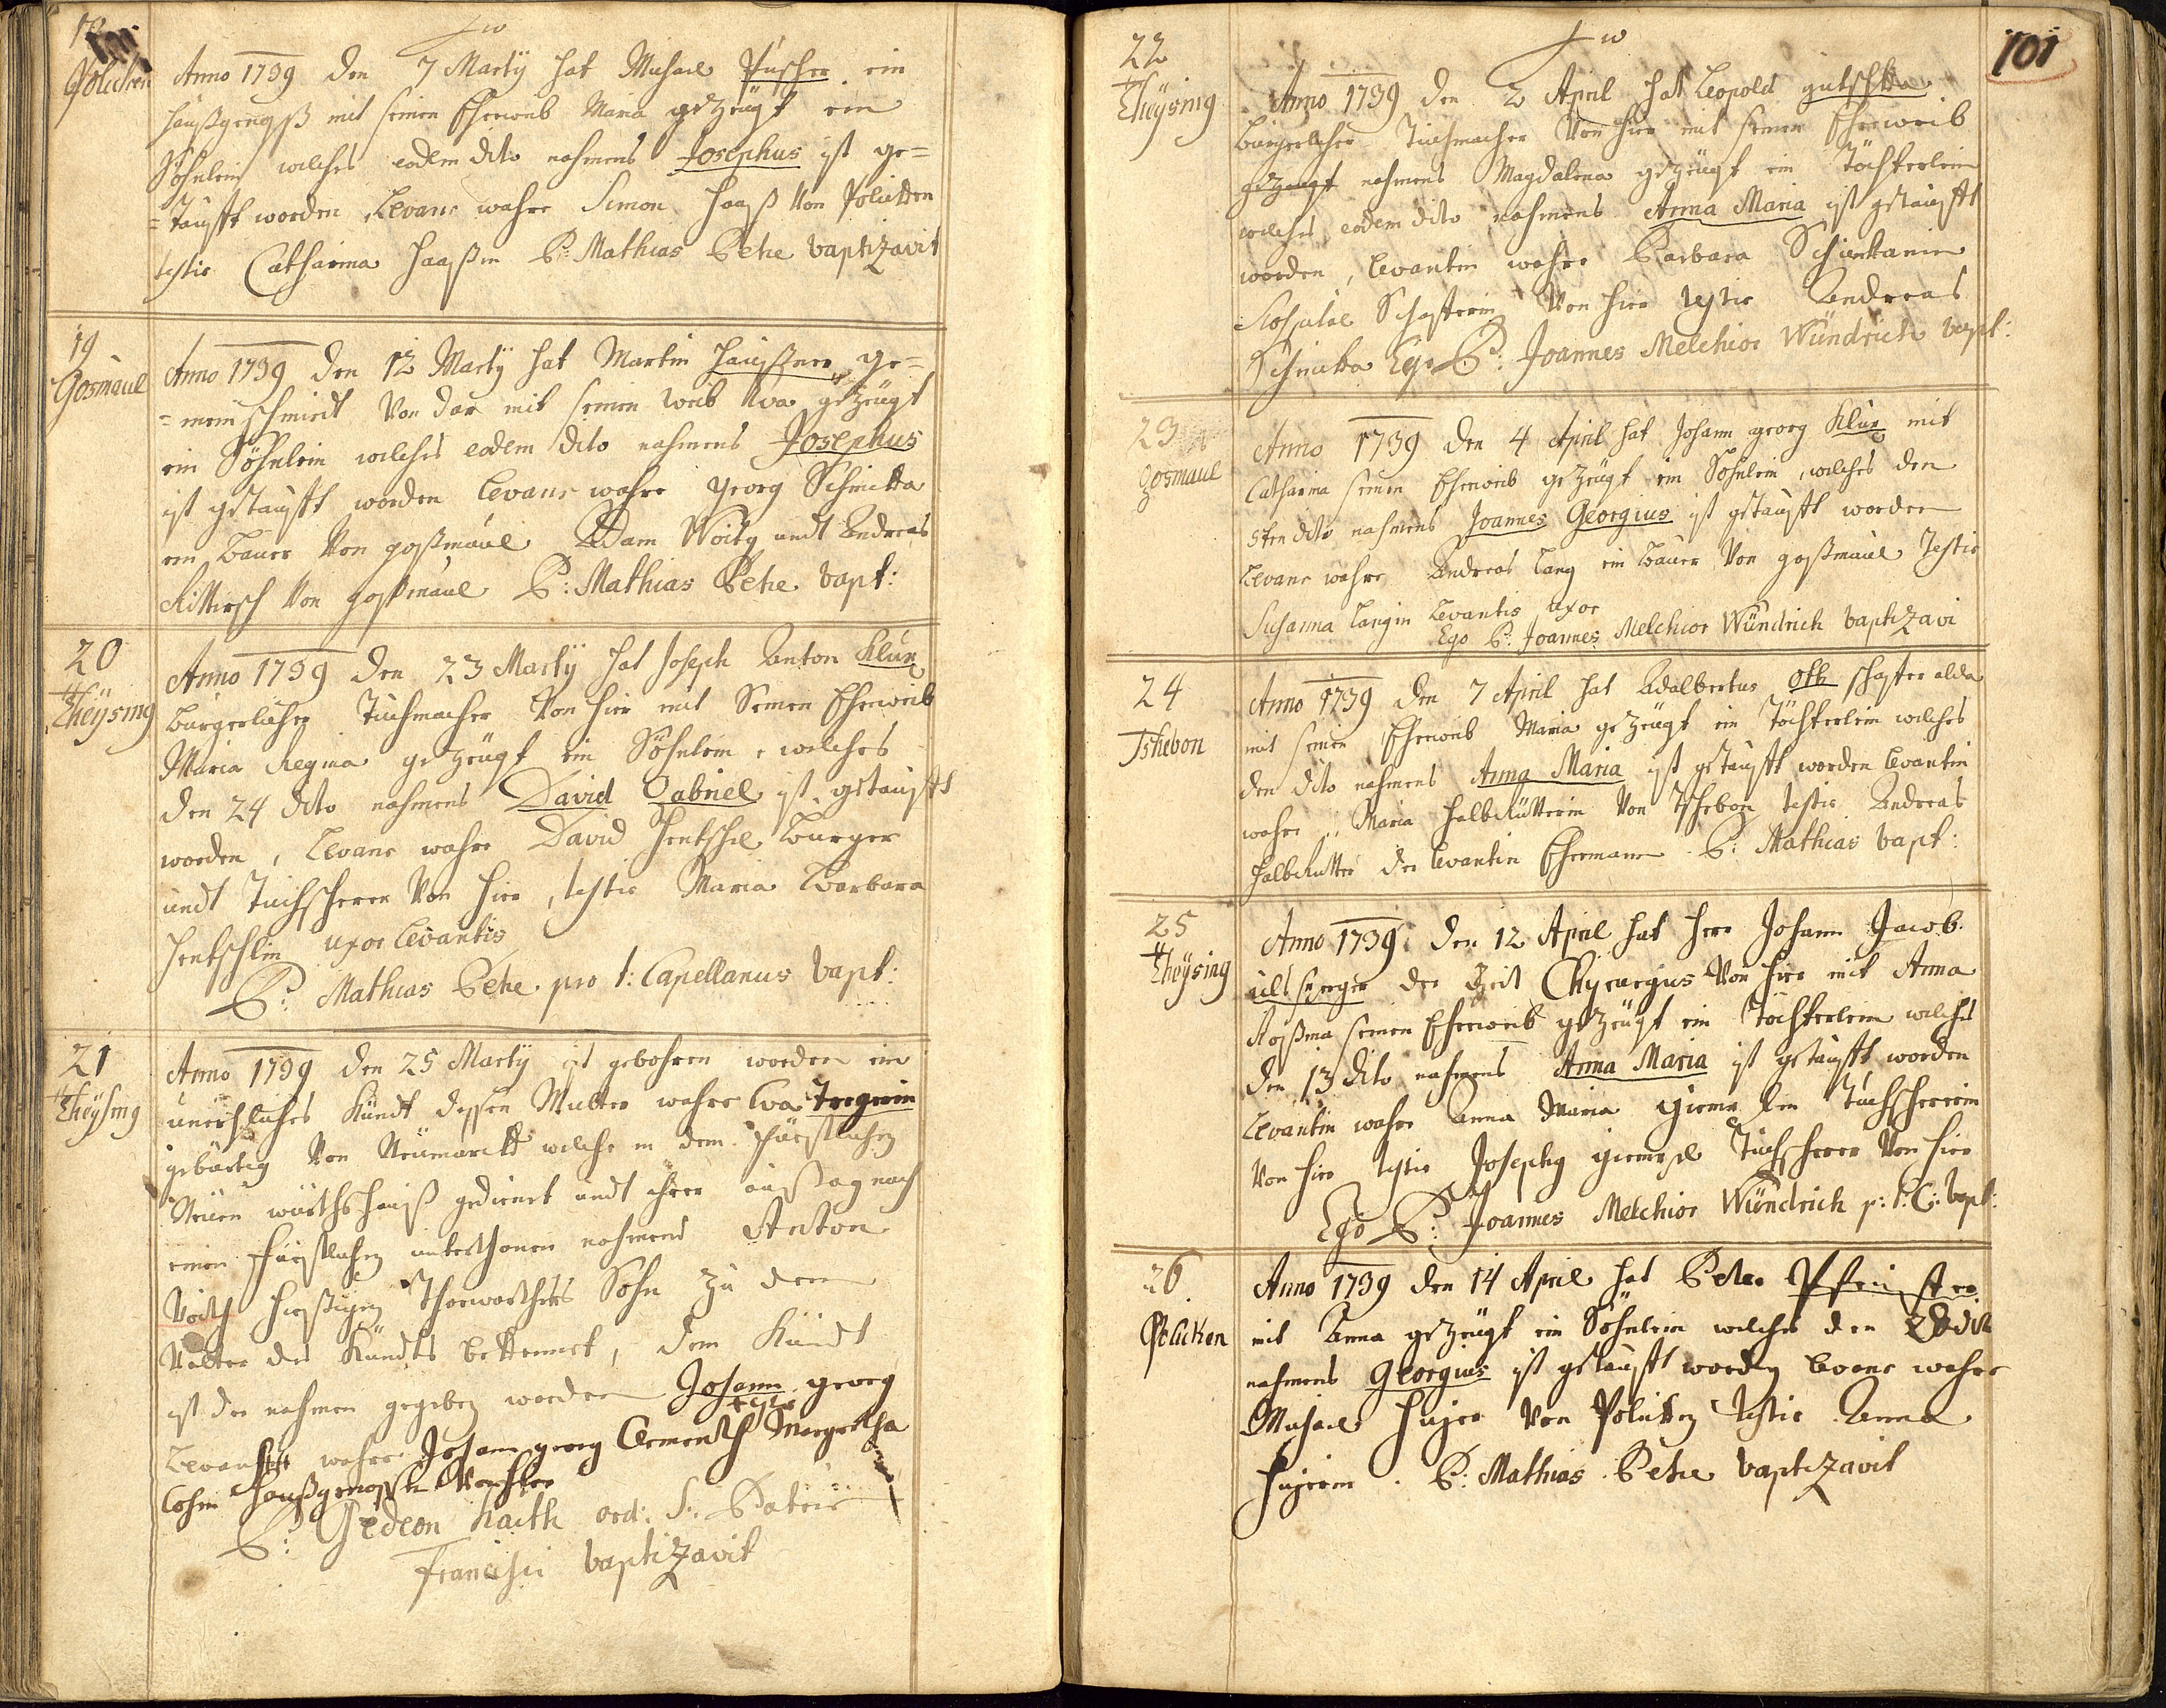 18
Policken
Anno 1739 den 7 Martÿ hat Michael Püscher ein
haußgenoß mit seinen Eheweib Maria gezeügt ein
Söhnlein welches eodem dito nahmens Josephus ist ge=
=taufft worden Levans wahre Simon Haaß Von Polikken
testis Catharina Haaßin P: Mathias Petre baptizavit
19
Gosmaul
Anno 1739 den 12 Martÿ hat Martin Haüßner ge=
=mein schmiedt Von dar mit seinen weib Eva gezeügt
ein Söhnlein welches eodem dito nahmens Josephus
ist getaufft worden Levans wahre georg Schmikka
ein Bauer Von goßmaul Adam Woitÿ undt Andreas
Von goßmaul P: Mathias Petre bapt:
20
Theÿsing
Anno 1739 den 23 Martÿ hat Joseph Anton Klux
bürgerlicher Tuchmacher Von hier mit Seinen Eheweib
Maria Regina gezeügt ein Söhnlein, welches
den 24 dito nahmens David Gabriel ist getaufft
worden, Levans wahre David Hentschl Burger
undt Tuchscherer Von hier, testis Maria Barbara
Hentschlin uxor Levantis
P: Mathias Petre pro t: Capellanus bapt:
21
Theÿsing
Anno 1739 den 25 Martÿ ist gebohren worden ein
unehrliches Kündt dessen Mutter wahre Eva Tregerin
gebürtig Von Neümarckt welche in dem Fürstlichen
Neüen würthshauß gedienet undt ihrer außsag nach
einen Fürstlichen unterthanen nahmens Anton
Voith hießigen Thorwarthers Sohn zu dem
Vatter des Kündts bekennet, dem Kündt
ist der nahmen gegeben worden Johann georg
testis
Levans wahre Johann georg Clementh Margretha
haußgenossin Von hier
P: Gedeon Raith ord: S: Patris
Francisci baptizavit
101
22
Theÿsing
Anno 1739 den 2 April hat Leopold gutschka
bürgerlicher Tuchmacher Von hier mit seinen Eheweib
gezeügt nahmens Magdalena gezeügt ein Töchterlein
welches eodem dito nahmens Anna Maria ist getaufft
worden, Levantin wahre Barbara
Schusterin Von hier testis Andreas
Schmikka Ego P: Joannes Melchior Wündrich bapt:
23
gosmaul
Anno 1739 den 4 April hat Johann georg Klux mit
Catharina seinen Eheweib gezeügt ein Söhnlein, welches den
5ten dito nahmens Joannes Georgius ist getaufft worden
Levans wahre Andreas Lang ein Bauer Von goßmaul Testis
Susanna Langin Levantis uxor
Ego P: Joannes Melchior Wündrich baptizavi
24
Tschebon
Anno 1739 den 7 April hat Adalbertus Oth schaffer alda
mit seinen Eheweib Maria gezeügt ein Töchterlein welches
den dito nahmens Anna Maria ist getaufft worden Levantin
wahre Maria Halbrütterin Von Tschebon testis Andreas
Halbrütter der Levantin Ehemann P: Mathias bapt:
25
Theÿsing
Anno 1739 den 12 April hat Herr Johann Jacob
ulsperger der Zeit Chyrurgus Von hier mit Anna
Rosina seinen Eheweib gezeügt ein Töchterlein welches
den 13 dito nahmens Anna Maria ist getaufft worden
Levantin wahre Anna Maria Tuchschererin
Von hier testis Joseph Tuchscherer Von hier
Ego P: Joannes Melchior Wündrich p: t: C: bapt:
26
Polikken
Anno 1739 den 14 April hat Peter
mit Anna gezeügt ein Söhnlein welches den dito
nahmens Georgius ist getaufft worden Levans wahre
Michael Hujer Von Polikken testis Anna
Hujerin. P: Mathias Petre baptizavit